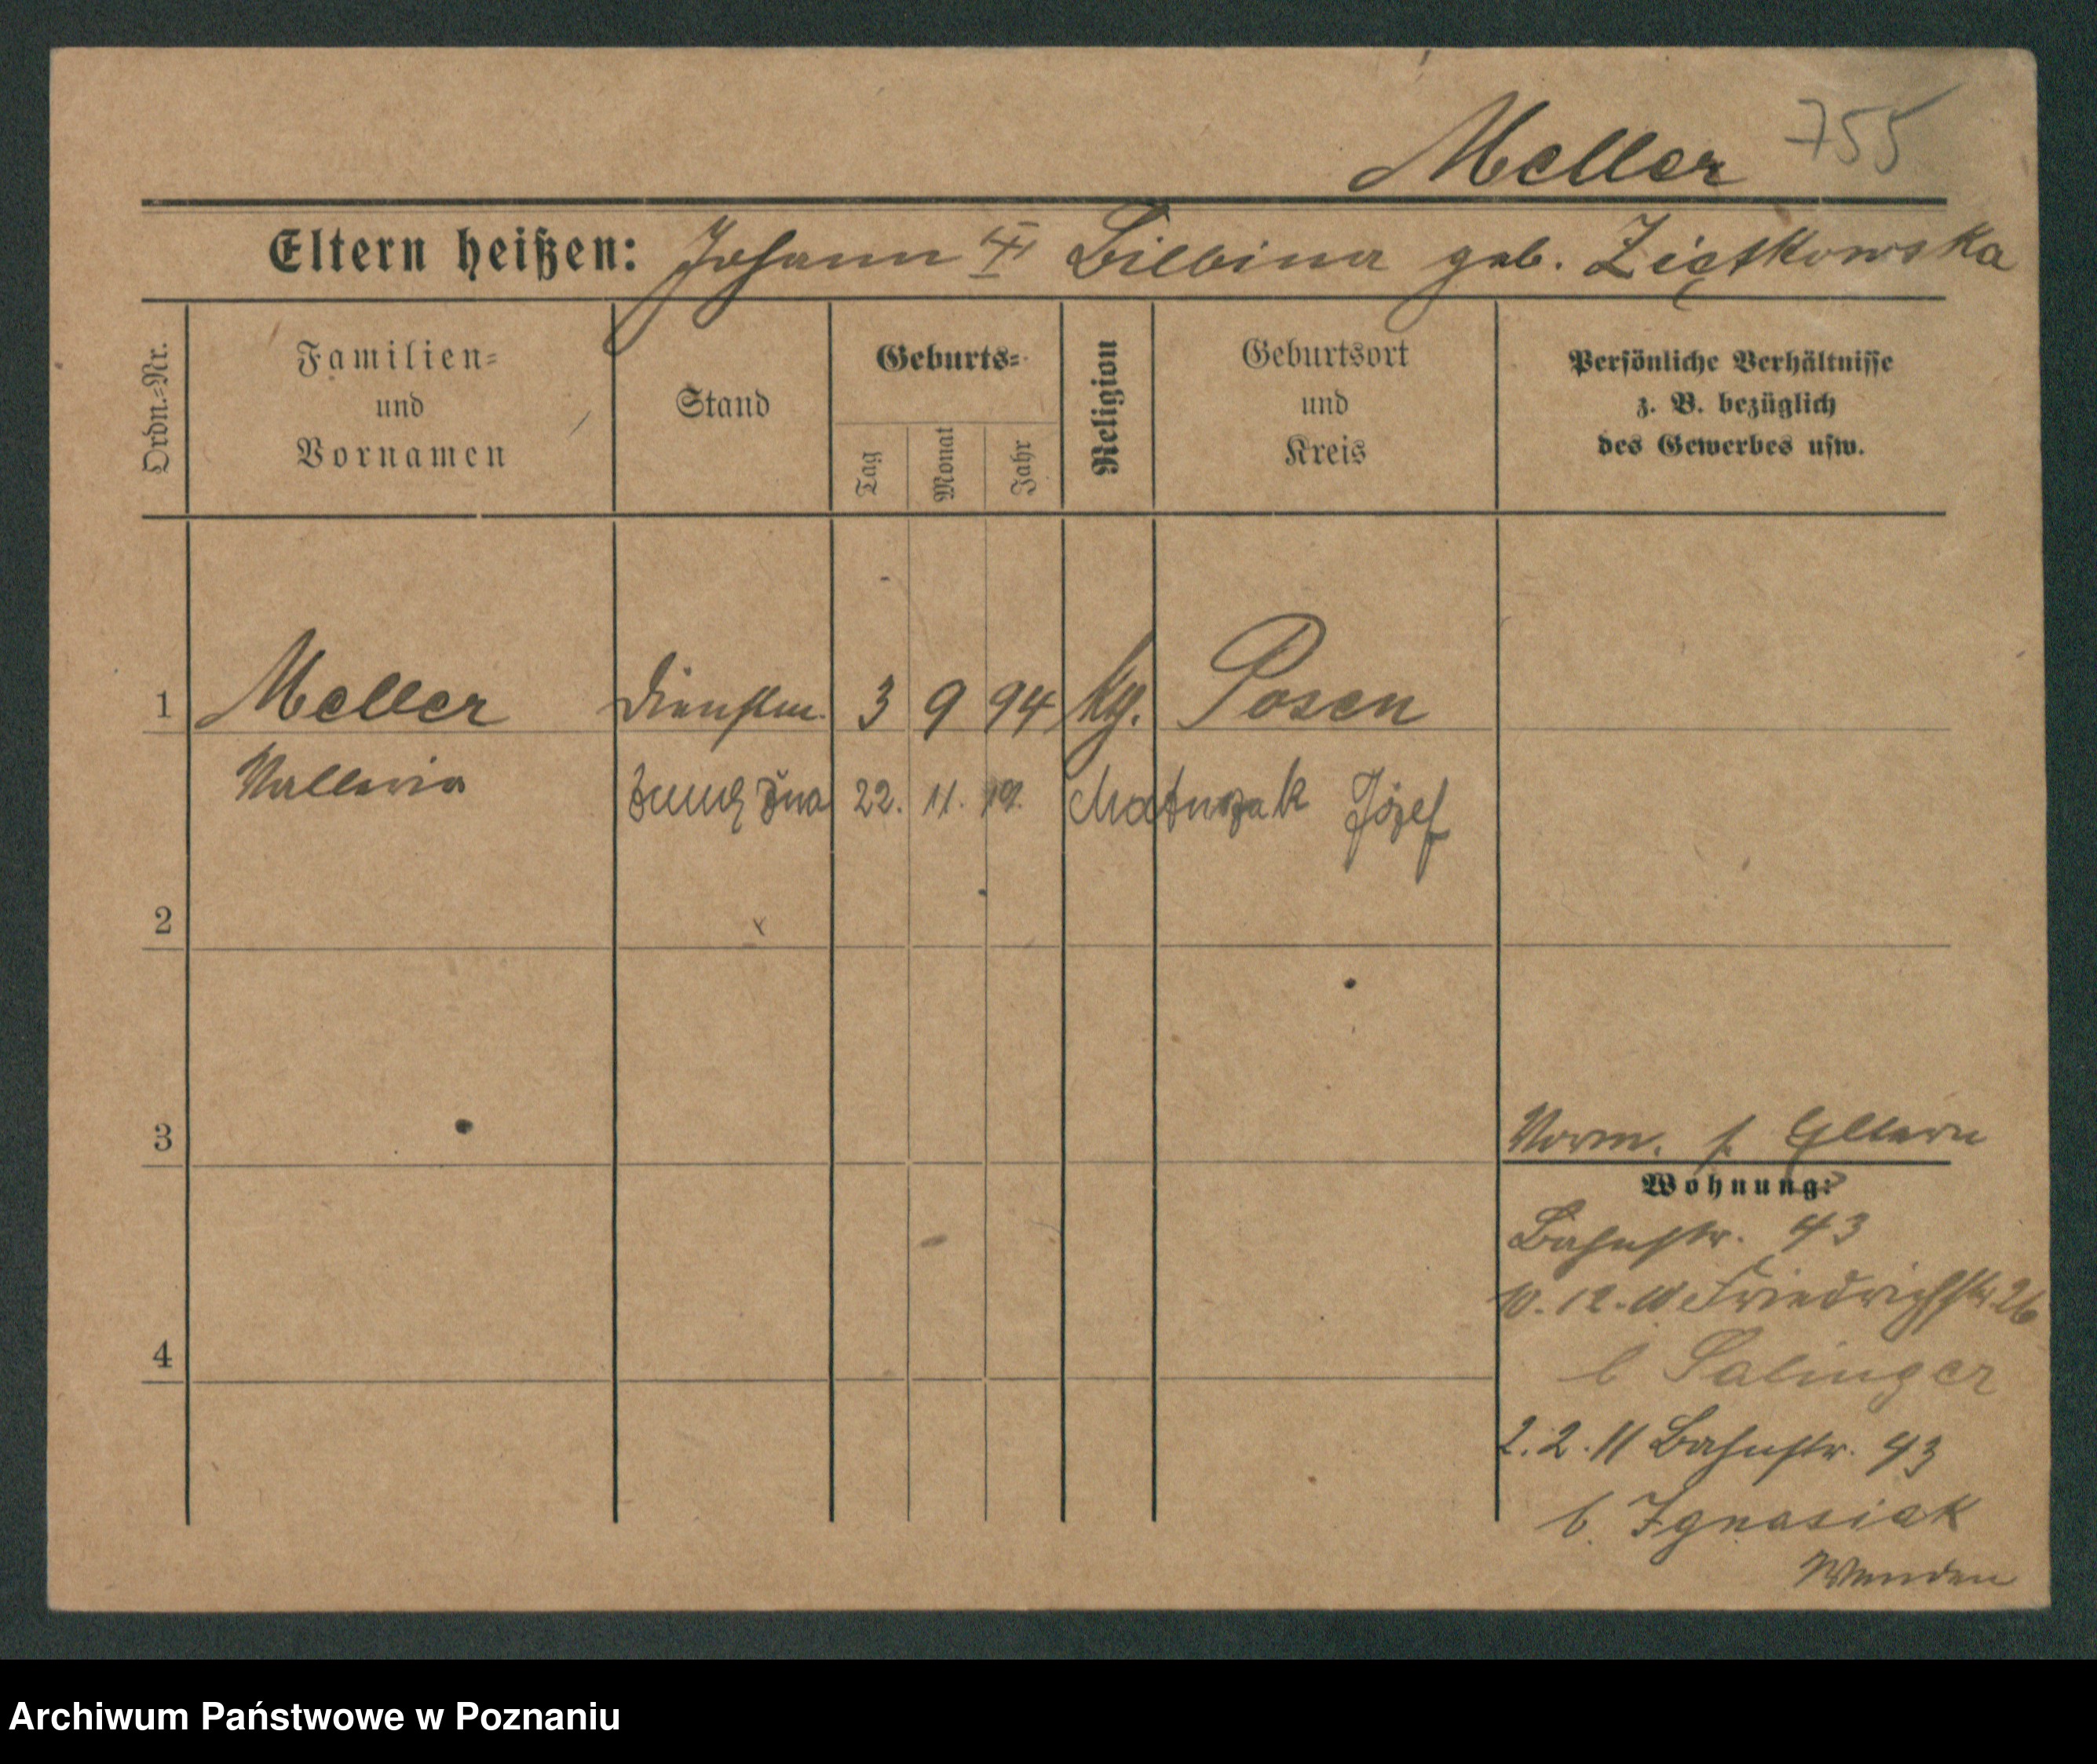 Meller 755
Eltern heißen: Johann Bilbina geb. Ziętkowska
Ordn.-Nr.
Familien-
und
Vornamen
Stand
Geburts-
Tag
Monat
Jahr
Religion
Geburtsort
und
Kreis
Persönliche Verhältnisse
z. B. bezüglich
des Gewerbes usw.
1 Meller Dienstm. 3 9 94 kg. Posen
22. 11. 19. Matuszak Józef
2
3
Vorm. s. Eltern
Wohnung:
Bahnstr. 43
10. 12. 10 Friedrichstr. 26
b Salinger
4
2. 2. 11 Bahnstr. 43
b. Ignasiak
Wenden
Archiwum Państwowe w Poznaniu